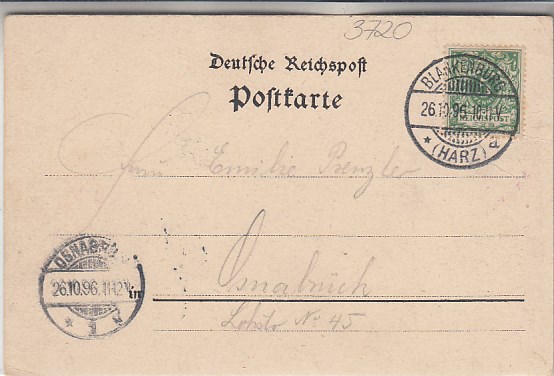 3720
Deutsche Reichspost
Postkarte
BLANKENBURG
26.10.96.
(HARZ)
REICHSPOST
Frau Emilie Prenzler
OSNAB
26.10.96.
in
Osnabrück
No 45